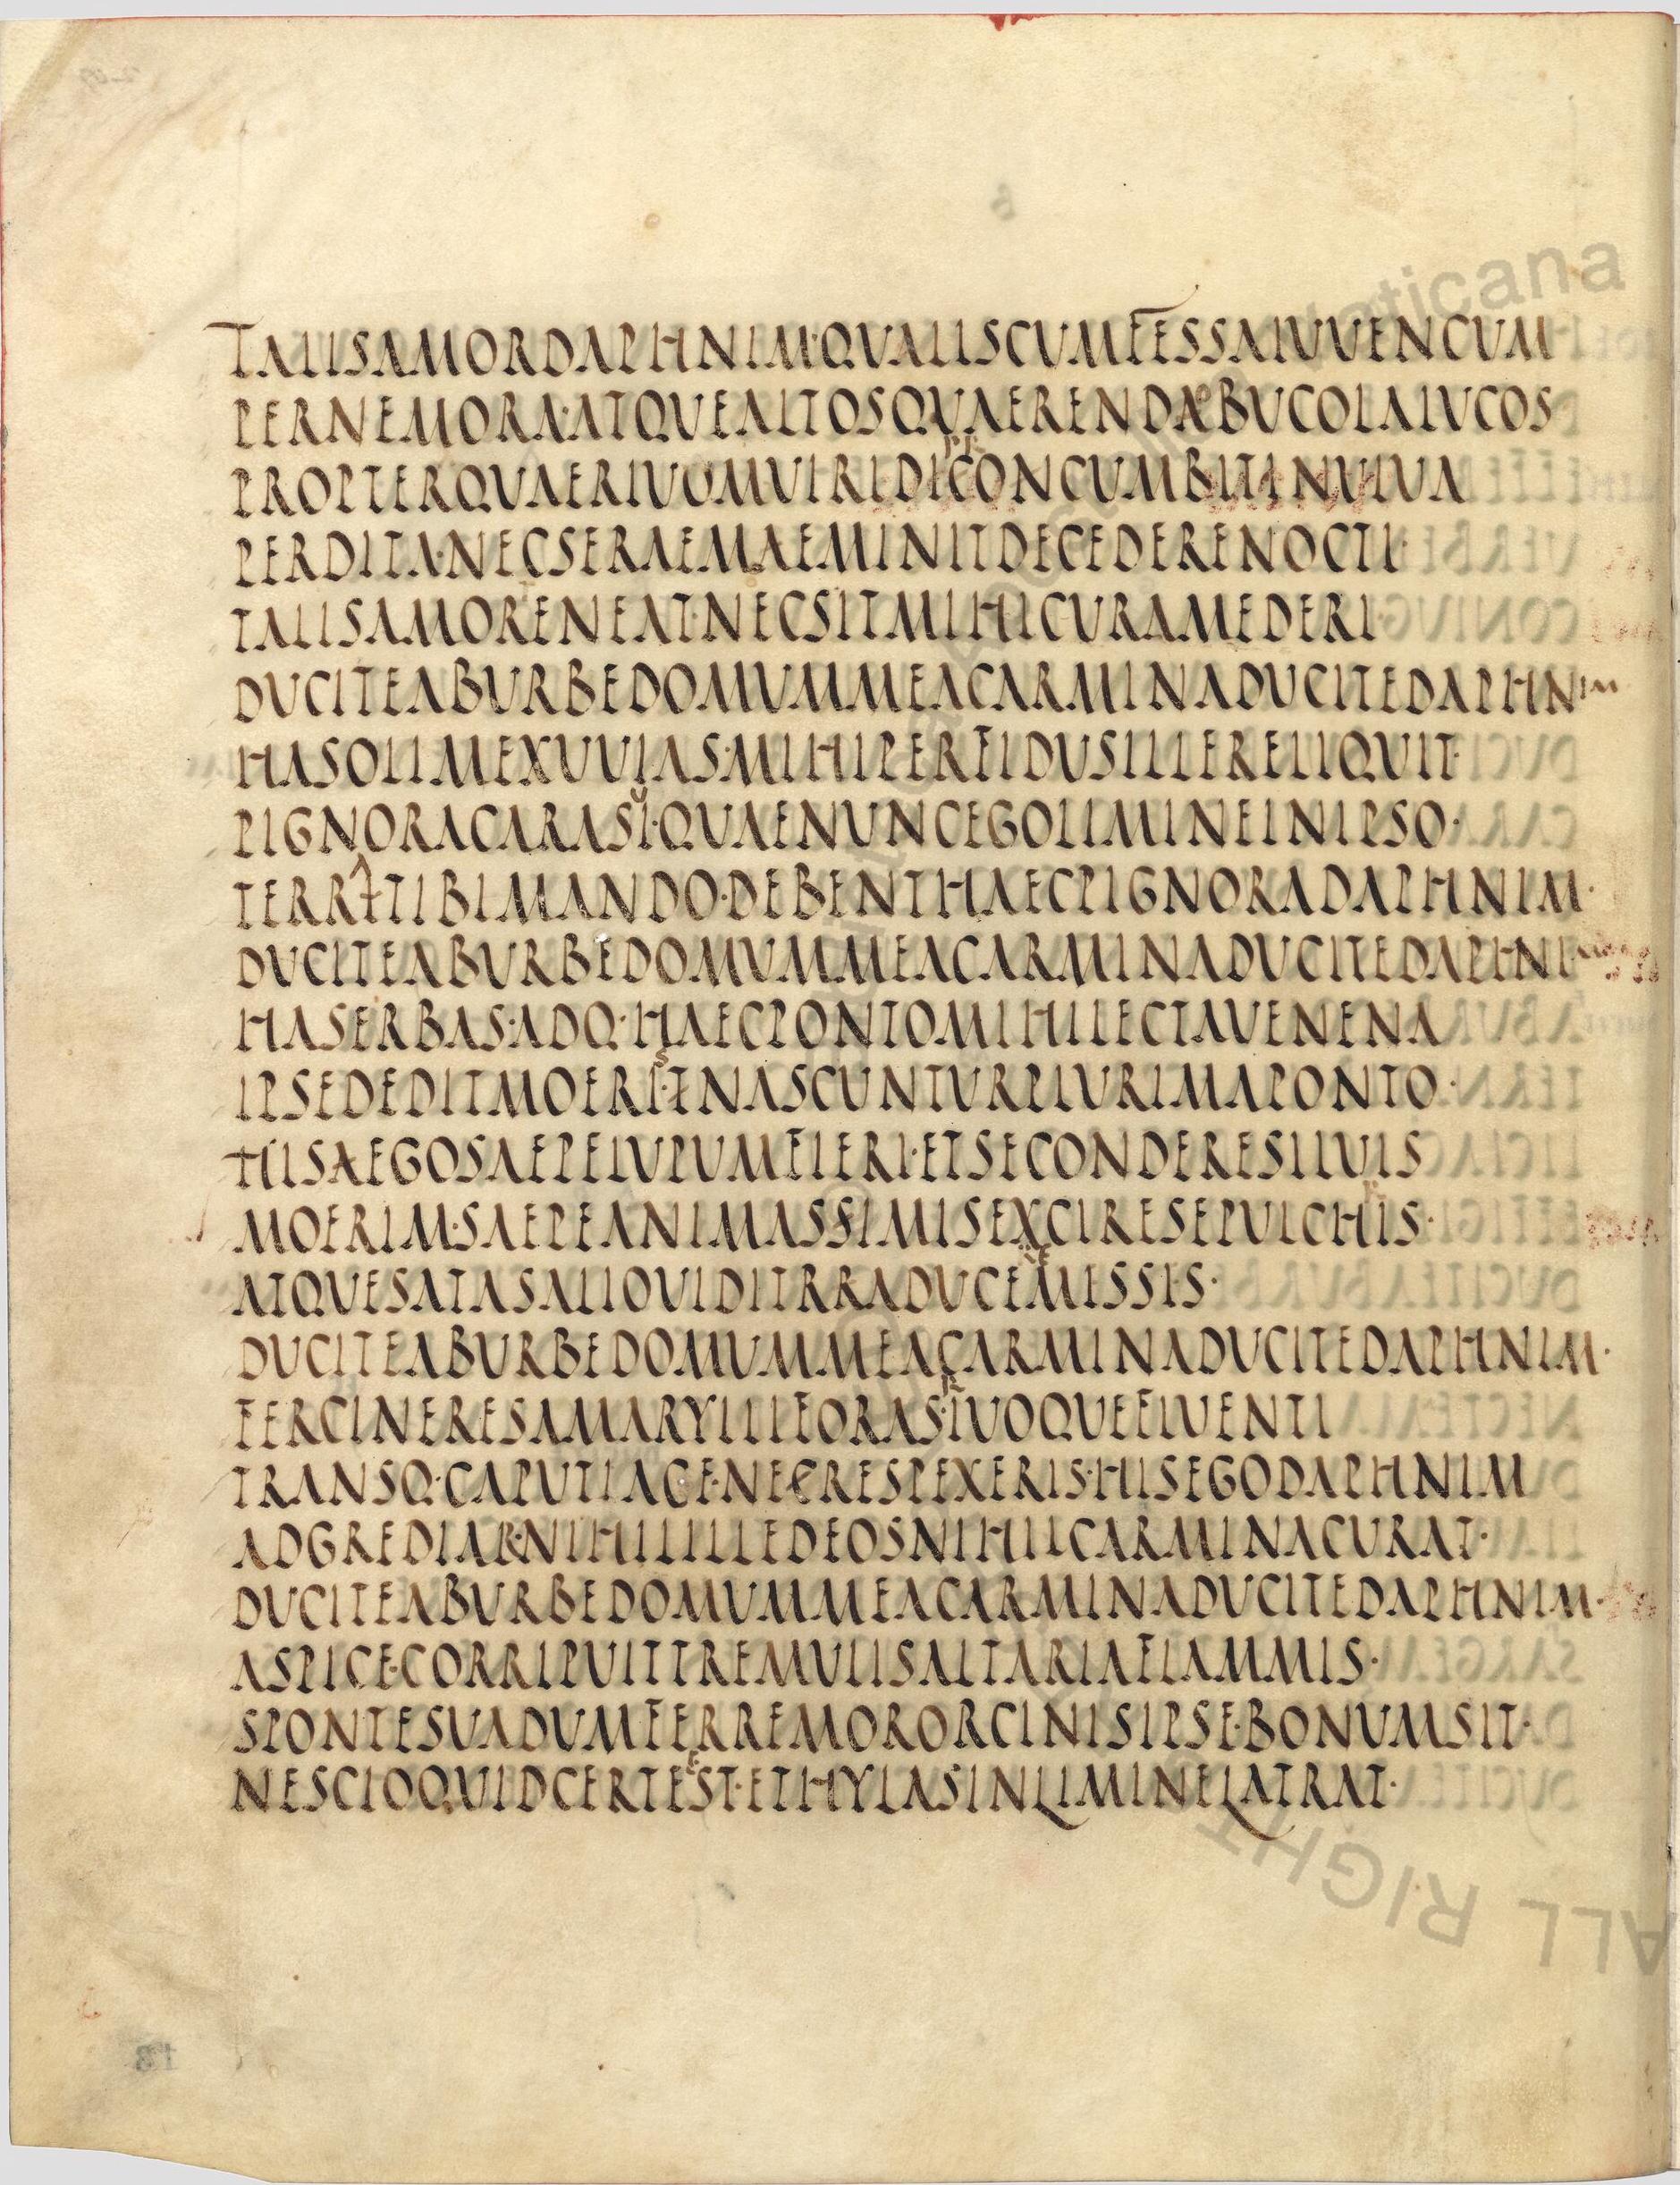 TALISAMORDAPHNIM·QVALISCUMFESSAIUVENCUM
PERNEMORA·ATQUEALTOSQVAERENDAEBUCOLALUCOS
PROPTERQVAERIVOMVIRIDICONCUMBITINVLVA
PERDITA·NECSERAEMAEMINITDECEDERENOCTI·
TALISAMORENEAT·NECSITMIHICURAMEDERI
DUCITEABURBEDOMUMMEACARMINADUCITEDAPHNIM
HASOLIMEXUVIAS·MIHIPERFIDUSILLERELIQUIT·
PIGNORACARASVI·QUAENUNCEGOLIMINEINIPSO·
TERRATIBIMANDO·DEBENTHAECPIGNORADAPHNIM·
DUCITEABURBEDOMUMMEACARMINADUCITEDAPHNIM
HASERBAS·ADQ·HAECPONTOMIHILECTAVENENA
IPSEDEDITMOERIS·NASCUNTURPLURIMAPONTO·
HISAEGOSAEPELUPUMFIERI·ETSECONDERESILVIS
MOERIM·SAEPEANIMASSIMISEXCIRESEPULCHRIS·
ATQUESATASALIOVIDITRRADUCEMESSIS·
DUCITEABURBEDOMUMMEACARMINADUCITEDAPHNIM·
FERCINERESAMARYLLIFORAS·RIVOQUEFLUENTI
TRANSQ·CAPUTIACE·NECRESPEXERIS·HISEGODAPHNIM
ADGREDIAR·NIHILILLEDEOSNIHILCARMINACURAT·
DUCITEABURBEDOMUMMEACARMINADUCITEDAPHNIM·
ASPICE·CORRIPUITTREMULISALTARIAFLAMMIS·
SPONTESUADUMFERREMORORCINISIPSE·BONUMSIT·
NESCIOQUIDCERTEEST·ETHYLASINLIMINELATRAT·
Vaticana
ALL RIGHT